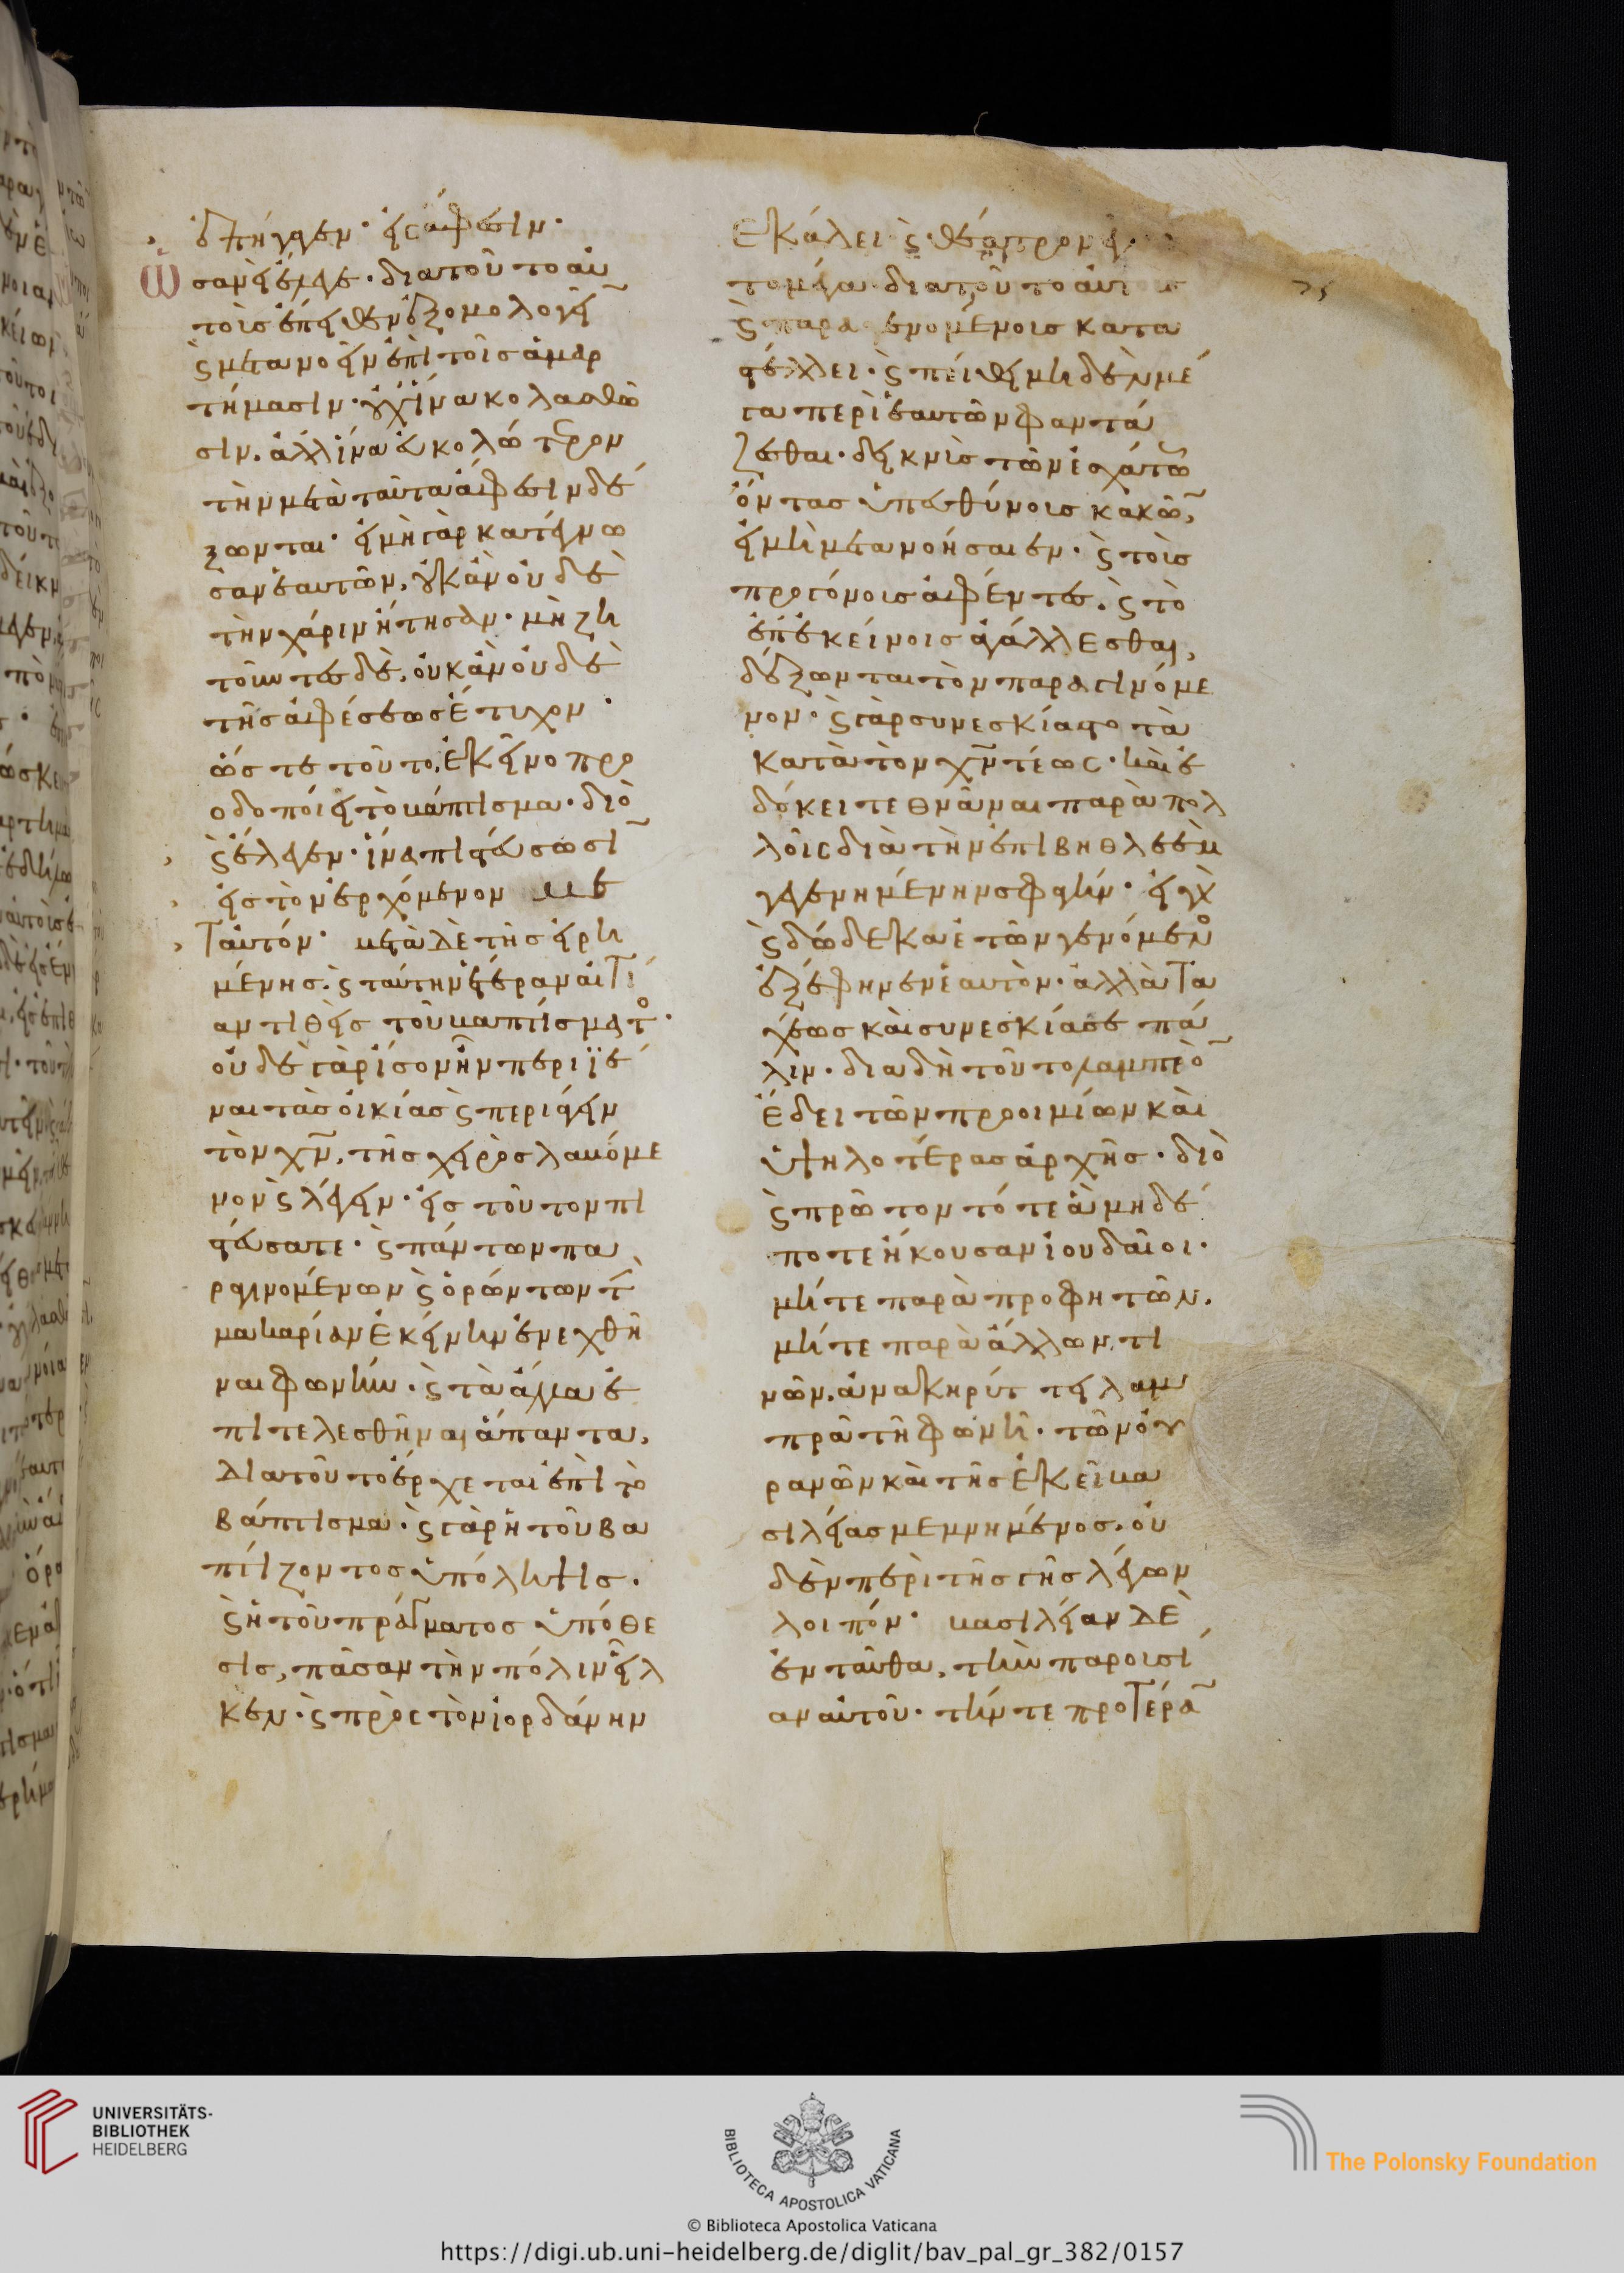 ἐπήγαγεν· εἰς ἄφεσιν·
ὡσανεὶ ἔλεγε· διατοῦτο αὐ
τοῖς ἔπειθεν ἐξομολογεῖ
ϛ μετανοεῖν ἐπὶ τοῖς ἁμαρ
τήμασιν· οὐχ ἵνα κολασθῶ
σιν. ἀλλ ἵνα εὐκολώτερον
τὴν μετὰ ταῦτα ἄφεσιν δέ
ξωνται· εἰ μὴ γὰρ κατέγνω
σαν ἑαυτῶν, οὐκ ἂν οὐδὲ
τὴν χάριν ᾔτησαν· μὴ ζη
τοῦντες δὲ, οὐκ ἂν οὐδὲ
τῆς ἀφέσεως ἔτυχον·
ὥστε τοῦτο, ἐκεῖνο προ
οδοποιεῖ τὸ βάπτισμα· διὸ
ϛ ἔλεγεν· ἵνα πιστεύσωσι
εἰς τὸν ἐρχόμενον με
ταυτόν· μετὰ δὲ τῆς εἰρη
μένης. ϛ ταύτην ἑτέραν αἰτί
αν τιθεὶς τοῦ βαπτίσματο·
οὐδὲ γὰρ ἴσον ἦν περιϊέ
ναι τὰς οἰκίας ϛ περιάγειν
τὸν χν, τῆς χειρὸς λαβόμε
νον ϛ λέγειν· εἰς τοῦτον πι
στεύσατε· ϛ πάντων πα
ραγινομένων ϛ ὁρώντων τ
μακαρίαν ἐκείνην ἐνεχθῆ
ναι φωνήν· ϛ τὰ ἄλλα ἐ
πιτελεσθῆναι ἅπαντα,
διατοῦτο ἔρχεται ἐπὶ τὸ
βάπτισμα· ϛ γὰρ ἡ τοῦ βα
πτίζοντος ὑπόληψις.
ϛ ἡ τοῦ πράγματος ὑπόθε
σις, πᾶσαν τὴν πόλιν εἷλ
κεν· ϛ πρὸς τὸν ἰορδάνην
ἐκάλει ϛ· θέατρον
διατοῦτο
ϛ παρα ενομένοις κατα
στέλλει· ϛ πείθει μηδὲν μέ
γα περὶ ἑαυτῶν φαντά
ζεσθαι· δεικνὺς τῶν ἐσχάτω
ὄντας ὑπευθύνοις κακῶ,
εἰ μὴ μετανοήσαιεν· ϛ τοὶς
προγόνοις ἀφέντες. ϛ τὸ
ἐπ ἐκείνοις ἀγάλλεσθαι,
δέξωνται τὸν παραγινόμε
νον· ϛ γὰρ συνεσκίαστο τὰ
κατὰ τὸν χν τέως· καὶ ἐ
δόκει τεθνάναι παρὰ πολ
λοῖς διὰ τὴν ἐπὶ βηθλεὲμ
γεγενημένην σφαγήν· εἰ γὰ
ϛ δώδεκα ἐτῶν γενόμενο
ἐξέφηνεν ἑαυτὸν· ἀλλὰ τα
χέως καὶ συνεσκίασε πά
λιν· διαδὴ τοῦτο
ἔδει τῶν προοιμίων καὶ
ὑψηλοτέρας ἀρχῆς· διὸ
ϛ πρῶτον τότε ἃ μηδέ
ποτε ἤκουσαν ἰουδαῖοι·
μήτε παρὰ προφητῶν.
μήτε παρὰ ἄλλων τι
νῶν. ἀνακηρύττει λαμ
πρᾶ τῆ φωνῆ· τῶν οὐ
ρανῶν καὶ τῆς ἐκεῖ βα
σιλείας μεμνημένος. οὐ
δὲν περὶ τῆς γῆς λέγων
λοιπόν· βασιλείαν δὲ
ἐνταῦθα, τὴν παρουσί
αν αὐτοῦ· τήν τε προτέρα
UNIVERSITÄTS-
BIBLIOTHEK
HEIDELBERG
BIBLIOTECA APOSTOLICA VATICANA
© Biblioteca Apostolica Vaticana
The Polonsky Foundation
https://digi.ub.uni-heidelberg.de/diglit/bav_pal_gr_382/0157